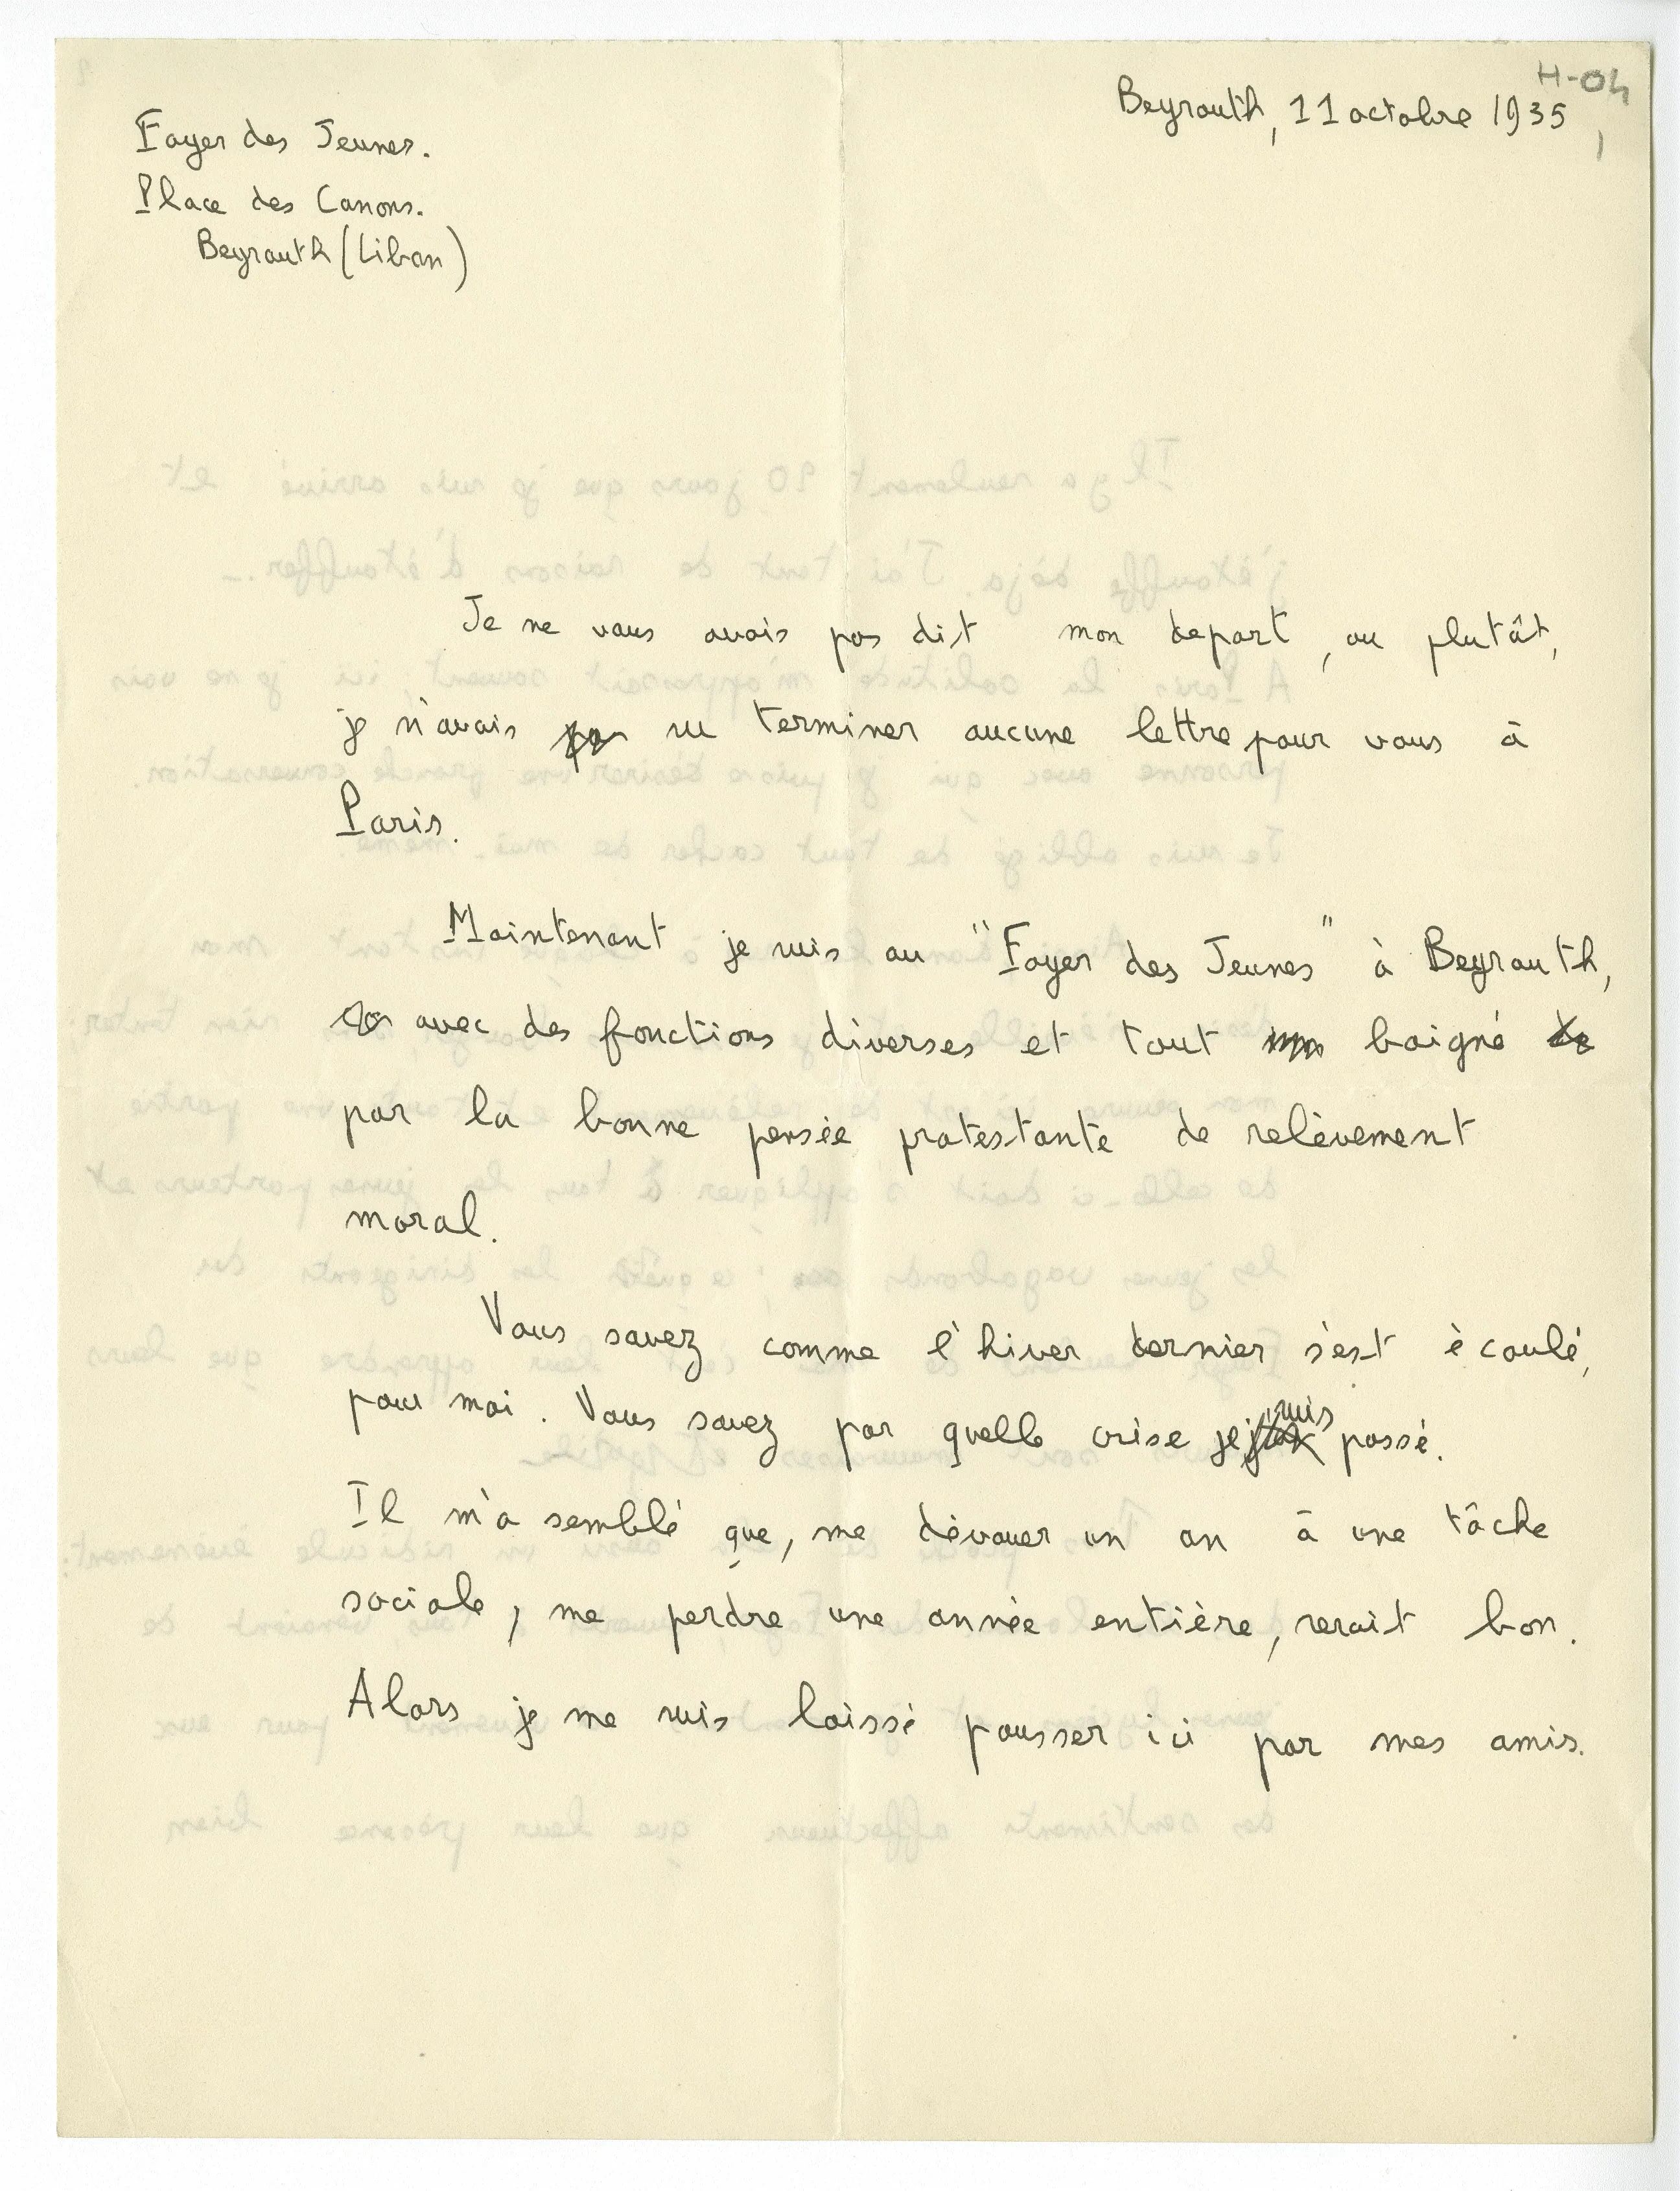 H-04
Beyrouth, 11 octobre 1935
Foyer des Jeunes.
Place des Canons.
Beyrouth (Liban)
Je ne vous avais pas dit mon depart, ou plutôt,
je n'avais su terminer aucune lettre pour vous à
Paris.
Maintenant je suis au "Foyer des Jeunes" à Beyrouth,
avec des fonctions diverses et tout baigné de
par la bonne pensée protestante de relèvement
moral.
Vous savez comme l'hiver dernier s'est écoulé,
pour moi. Vous savez par quelle crise je suis passé.
Il m'a semblé que, me dévouer un an à une tâche
sociale, me perdre une année entière, serait bon.
Alors je me suis laissé pousser ici par mes amis.